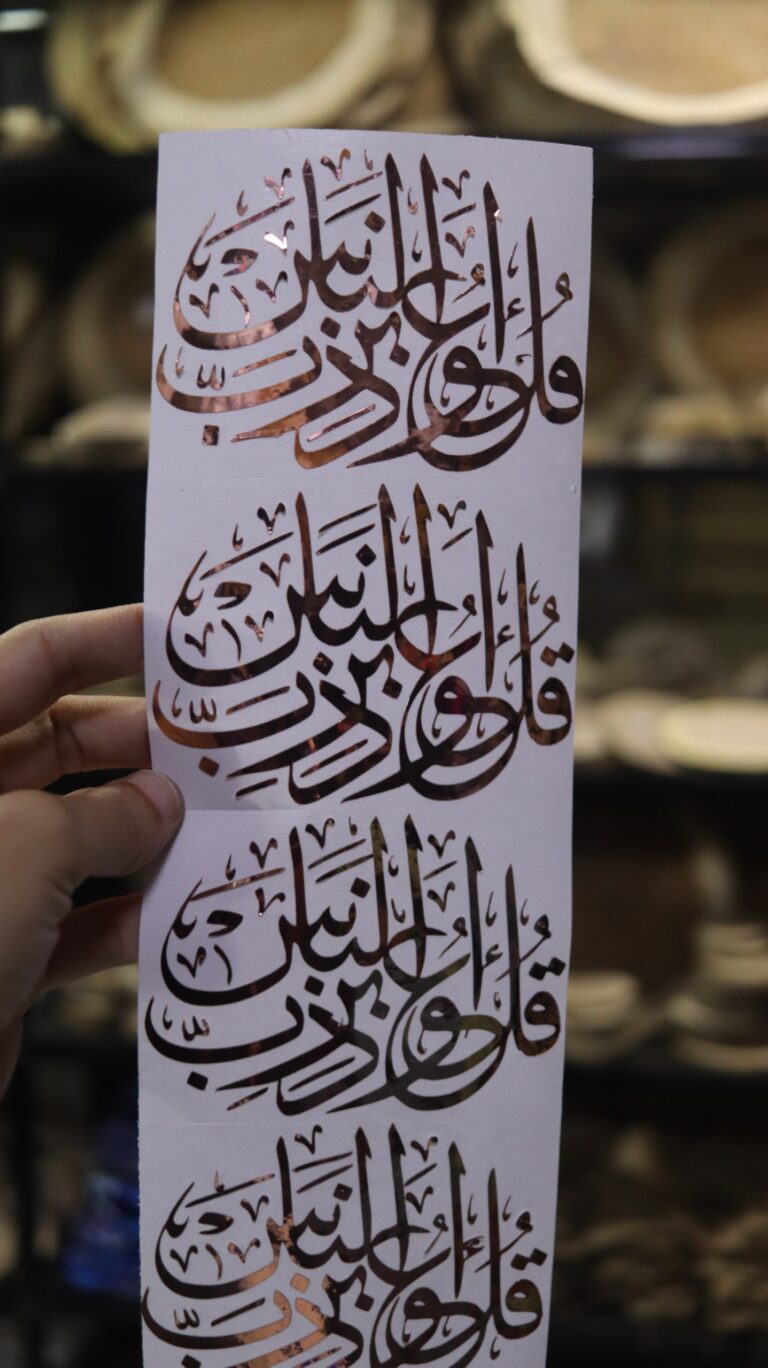 قُلْ أَعُوذُ بِرَبِّ النَّاسِ
قُلْ أَعُوذُ بِرَبِّ النَّاسِ
قُلْ أَعُوذُ بِرَبِّ النَّاسِ
قُلْ أَعُوذُ بِرَبِّ النَّاسِ